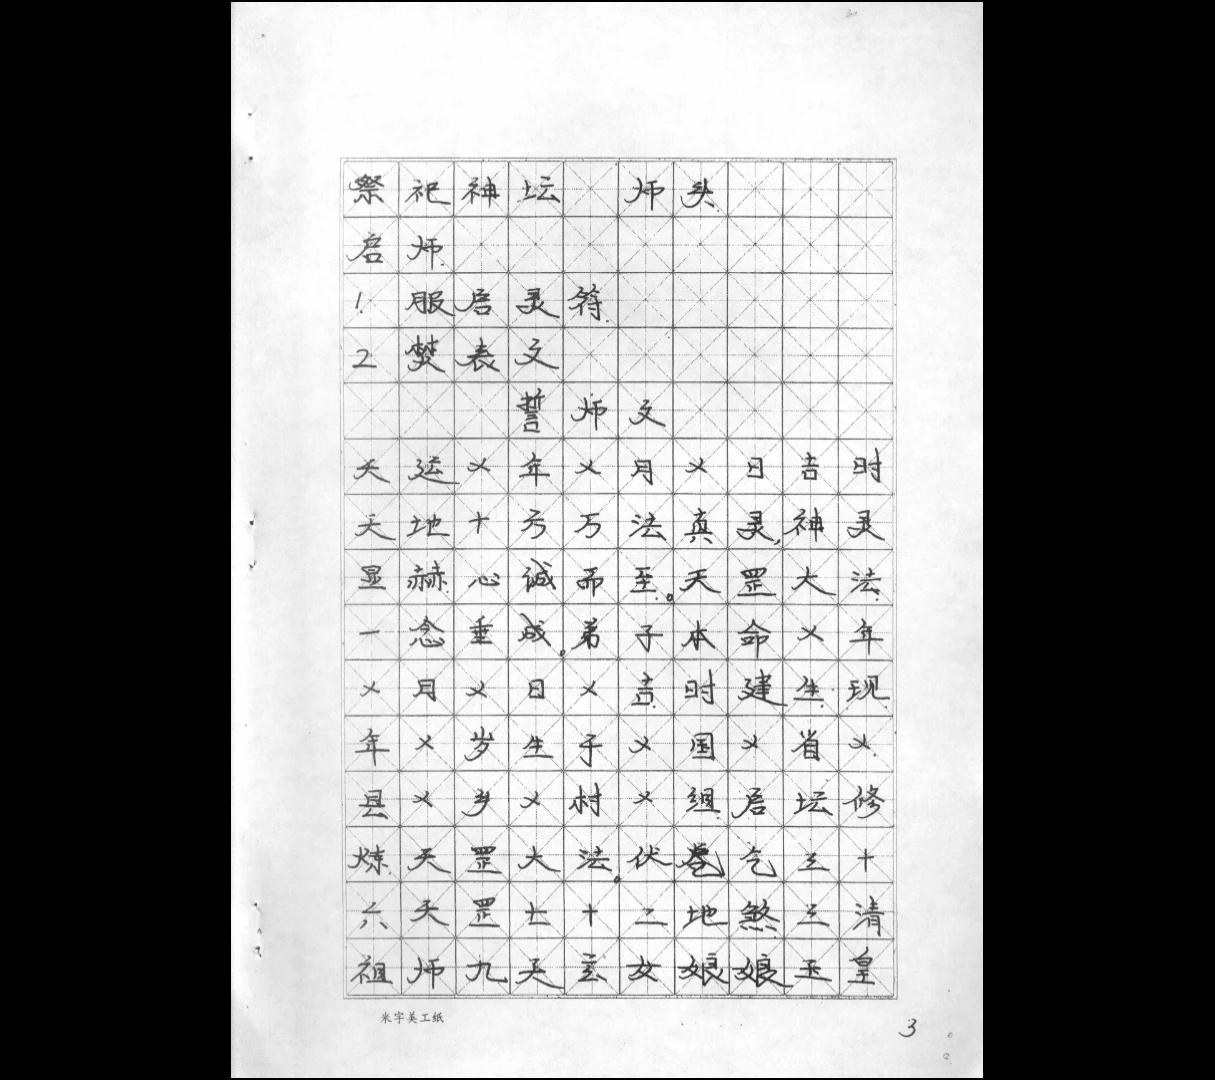 祭祀神坛 师头
启师
1. 服启灵符
2 焚表文
誓师文
天运乂年乂月乂日吉时
天地十亏万法真灵,神灵
显赫心诚而至。天罡大法
一念垂成。弟子本命乂年
乂月乂日乂吉时建生现
年乂岁生于乂国乂省乂
县乂乡乂村乂组启坛修
炼天罡大法。伏乞三十
六天罡七十二地煞三清
祖师九天玄女娘娘玉皇
米字美工纸
3